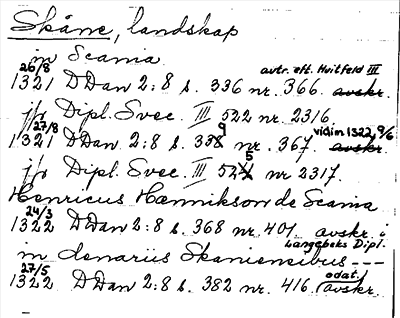 Skåne, landskap
in Scania
26/8 avtr. eft. Hvitfeld III
1321 DDan 2:8 s. 336 nr. 366. avskr.
jfr Dipl. Svec. III 522 nr. 2316.
27/8 vidim 1322 9/6
1321 DDan 2:8 s. 339 nr. 367. avskr.
jfr Dipl. Svec. III 525 nr 2317.
Henricus Hænrikson de Scania
24/3
1322 DDan 2:8 s. 368 nr. 401. avskr. i
Langebeks Dipl.
in denariis Skaniensibus ---
27/5 odat.
1322 DDan 2:8 s. 382 nr. 416. (avskr.